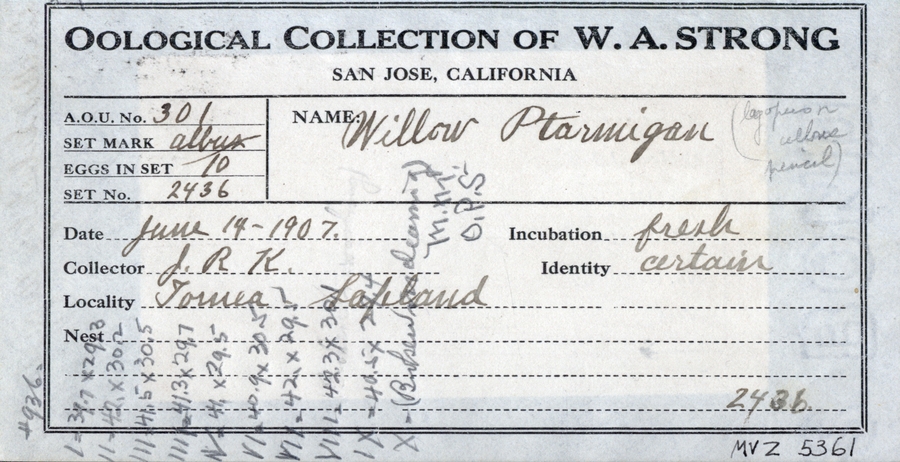 OOLOGICAL COLLECTION OF W. A. STRONG
SAN JOSE, CALIFORNIA
A.O.U. No. 301
SET MARK albus
EGGS IN SET 10
SET No. 2436
NAME: Willow Ptarmigan
(lagopus
albus
pencil)
Date June 14 - 1907.
Incubation fresh
Collector J. R K.
Identity certain
Locality Tornea Lapland
Nest
2436
I = 39.7 x 29.3
II = 42. x 30.2
III = 41.5 x 30.5
IIII = 41.3 x 29.7
V = 41. x 29.5
VI = 40.9 x 30.5
VII = 42. x 29.
VIII = 42.3 x 30.
IX = 40.5 x
X - (Broken
O.P.S.
MVZ 5361